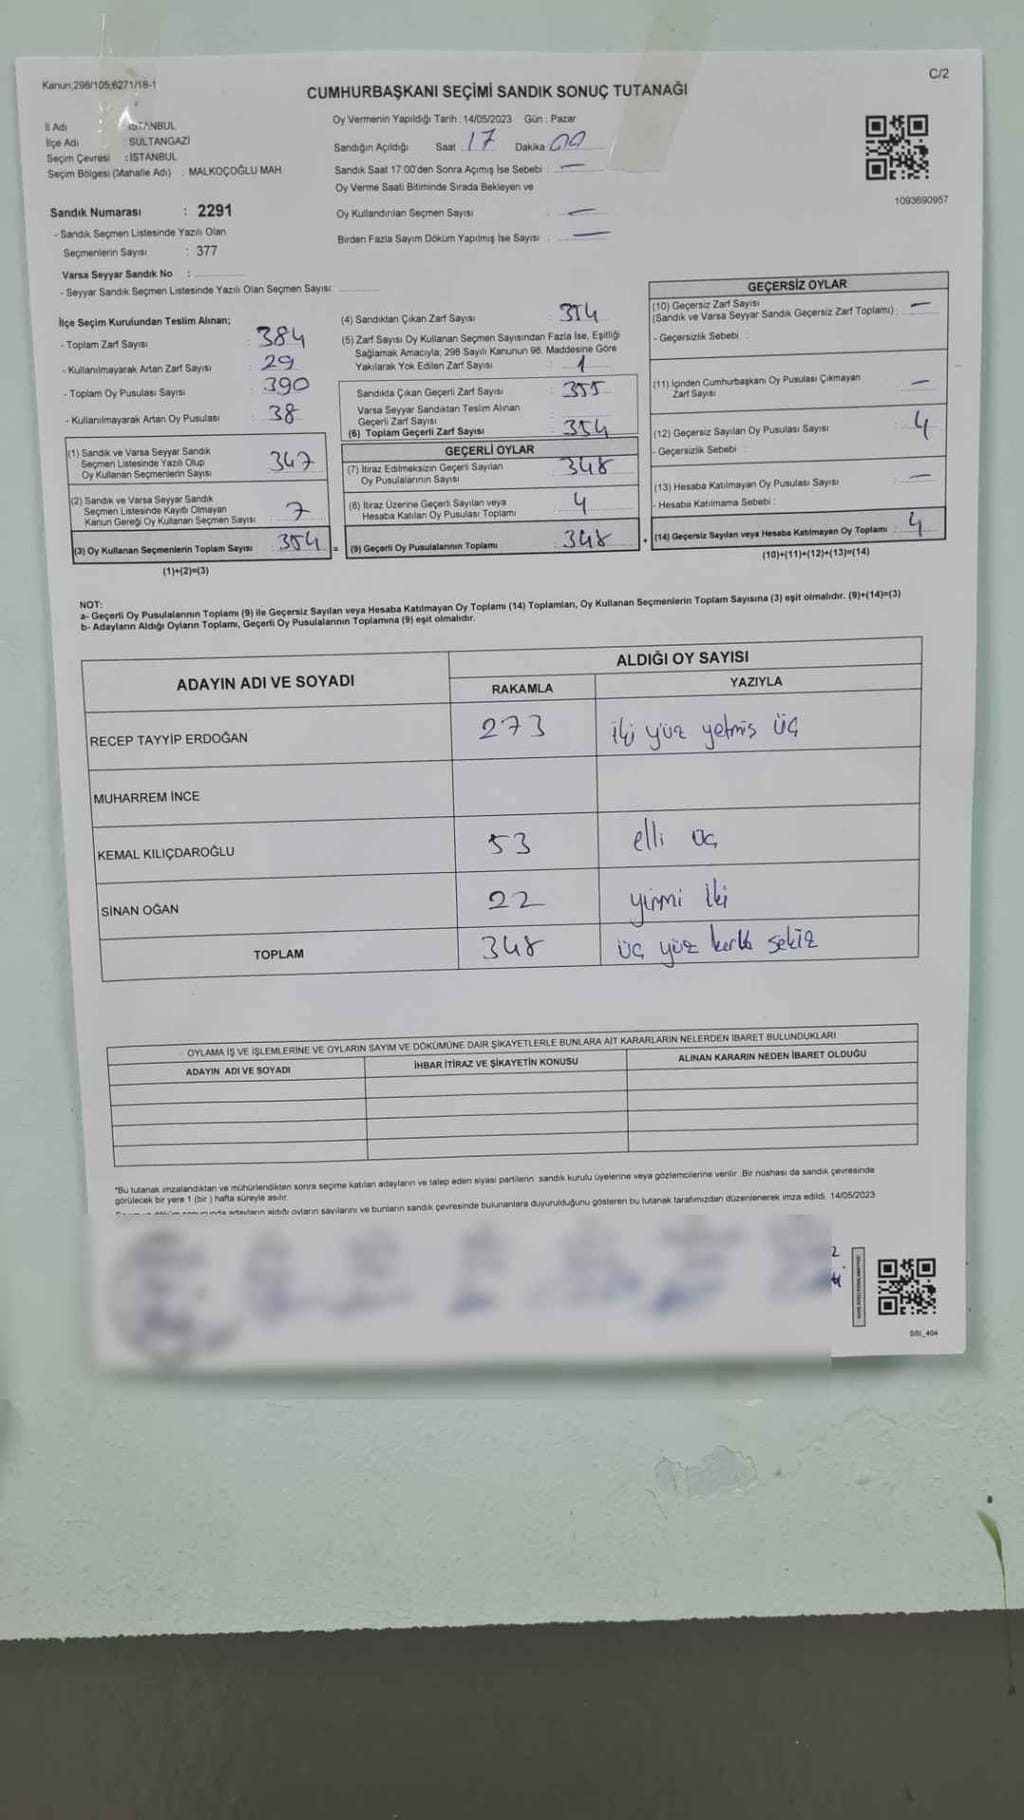 Kanun;298/105;6271/18-1
C/2
CUMHURBAŞKANI SEÇİMİ SANDIK SONUÇ TUTANAĞI
İl Adı : İSTANBUL
İlçe Adı : SULTANGAZİ
Seçim Çevresi : İSTANBUL
Seçim Bölgesi (Mahalle Adı) : MALKOÇOĞLU MAH.
Sandık Numarası : 2291
- Sandık Seçmen Listesinde Yazılı Olan
Seçmenlerin Sayısı : 377
Varsa Seyyar Sandık No :
- Seyyar Sandık Seçmen Listesinde Yazılı Olan Seçmen Sayısı:
Oy Vermenin Yapıldığı Tarih : 14/05/2023 Gün : Pazar
Sandığın Açıldığı Saat : 17 Dakika 00
Sandık Saat 17:00'den Sonra Açımış İse Sebebi : —
Oy Verme Saati Bitiminde Sırada Bekleyen ve
Oy Kullandırılan Seçmen Sayısı : —
Birden Fazla Sayım Döküm Yapılmış İse Sayısı : —
1093690957
İlçe Seçim Kurulundan Teslim Alınan;
- Toplam Zarf Sayısı : 384
- Kullanılmayarak Artan Zarf Sayısı : 29
- Toplam Oy Pusulası Sayısı : 390
- Kullanılmayarak Artan Oy Pusulası : 38
(1) Sandık ve Varsa Seyyar Sandık
Seçmen Listesinde Yazılı Olup
Oy Kullanan Seçmenlerin Sayısı 347
(2) Sandık ve Varsa Seyyar Sandık
Seçmen Listesinde Kayıtlı Olmayan
Kanun Gereği Oy Kullanan Seçmen Sayısı 7
(3) Oy Kullanan Seçmenlerin Toplam Sayısı 354 =
(1)+(2)=(3)
(4) Sandıktan Çıkan Zarf Sayısı : 354
(5) Zarf Sayısı Oy Kullanan Seçmen Sayısından Fazla İse, Eşitliği
Sağlamak Amacıyla; 298 Sayılı Kanunun 98. Maddesine Göre
Yakılarak Yok Edilen Zarf Sayısı : 1
Sandıkta Çıkan Geçerli Zarf Sayısı : 355
Varsa Seyyar Sandıktan Teslim Alınan
Geçerli Zarf Sayısı :
(6) Toplam Geçerli Zarf Sayısı : 354
GEÇERLİ OYLAR
(7) İtiraz Edilmeksizin Geçerli Sayılan
Oy Pusulalarının Sayısı : 348
(8) İtiraz Üzerine Geçerli Sayılan veya
Hesaba Katılan Oy Pusulası Toplamı : 4
(9) Geçerli Oy Pusulalarının Toplamı : 348 +
GEÇERSİZ OYLAR
(10) Geçersiz Zarf Sayısı
(Sandık ve Varsa Seyyar Sandık Geçersiz Zarf Toplamı) : —
- Geçersizlik Sebebi :
(11) İçinden Cumhurbaşkanı Oy Pusulası Çıkmayan
Zarf Sayısı : —
(12) Geçersiz Sayılan Oy Pusulası Sayısı : 4
- Geçersizlik Sebebi :
(13) Hesaba Katılmayan Oy Pusulası Sayısı : —
- Hesaba Katılmama Sebebi :
(14) Geçersiz Sayılan veya Hesaba Katılmayan Oy Toplamı : 4
(10)+(11)+(12)+(13)=(14)
NOT:
a- Geçerli Oy Pusulalarının Toplamı (9) ile Geçersiz Sayılan veya Hesaba Katılmayan Oy Toplamı (14) Toplamları, Oy Kullanan Seçmenlerin Toplam Sayısına (3) eşit olmalıdır. (9)+(14)=(3)
b- Adayların Aldığı Oyların Toplamı, Geçerli Oy Pusulalarının Toplamına (9) eşit olmalıdır.
ADAYIN ADI VE SOYADI
ALDIĞI OY SAYISI
RAKAMLA YAZIYLA
RECEP TAYYİP ERDOĞAN 273 iki yüz yetmis üç
MUHARREM İNCE
KEMAL KILIÇDAROĞLU 53 elli üç
SİNAN OĞAN 22 yirmi iki
TOPLAM 348 üç yüz kırk sekiz
OYLAMA İŞ VE İŞLEMLERİNE VE OYLARIN SAYIM VE DÖKÜMÜNE DAİR ŞİKAYETLERLE BUNLARA AİT KARARLARIN NELERDEN İBARET BULUNDUKLARI
ADAYIN ADI VE SOYADI İHBAR İTİRAZ VE ŞİKAYETİN KONUSU ALINAN KARARIN NEDEN İBARET OLDUĞU
*Bu tutanak imzalandıktan ve mühürlendikten sonra seçime katılan adayların ve talep eden siyasi partilerin sandık kurulu üyelerine veya gözlemcilerine verilir .Bir nüshası da sandık çevresinde
görülecek bir yere 1 (bir ) hafta süreyle asılır.
adayların aldığı oyların sayılarını ve bunların sandık çevresinde bulunanlara duyurulduğunu gösteren bu tutanak tarafımızdan düzenlenerek imza edildi. 14/05/2023
SSI_404